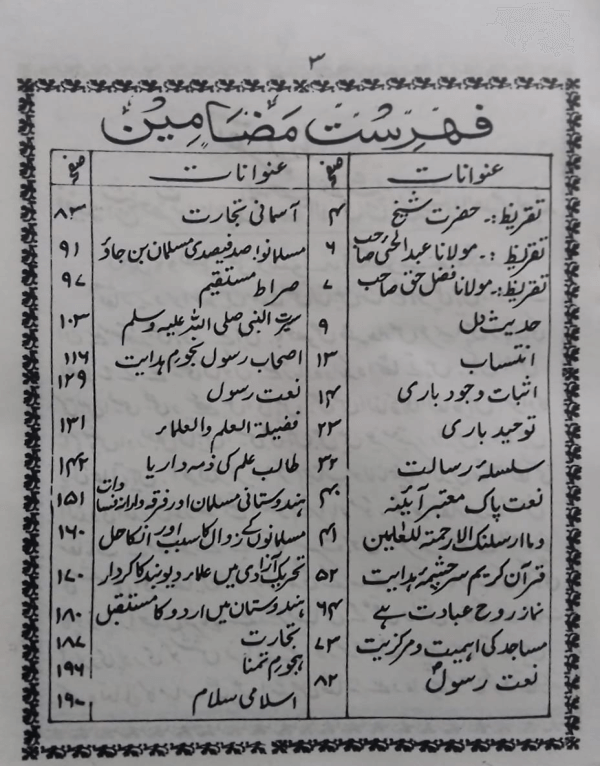 ۳
فہرست مضامین
عنوانات صفحہ
تقریظ :۔ حضرت شیخ ۴
تقریظ :۔ مولانا عبدالحئی صاحب ۶
تقریظ :۔ مولانا فضل حق صاحب ۷
حدیث دل ۹
انتساب ۱۳
اثبات وجود باری ۱۴
توحید باری ۲۳
سلسلۂ رسالت ۳۲
نعت پاک معتبر آئینہ ۴۰
وما ارسلنک الا رحمۃ للعٰلمین ۴۱
قرآن کریم سرچشمۂ ہدایت ۵۲
نماز روح عبادت ہے ۶۴
مساجد کی اہمیت و مرکزیت ۷۳
نعت رسولؐ ۸۲
عنوانات صفحہ
آسمانی تجارت ۸۳
مسلمانو! صد فیصدی مسلمان بن جاؤ ۹۱
صراط مستقیم ۹۷
سیرت النبی صلی اللہ علیہ وسلم ۱۰۳
اصحاب رسول نجوم ہدایت ۱۱۶
نعت رسول ۱۲۹
فضیلۃ العلم والعلماء ۱۳۱
طالب علم کی ذمہ داریا ۱۴۲
ہندوستانی مسلمان اور فرقہ وارانہ فسادات ۱۵۱
مسلمانوں کے زوال کا سبب اور انکا حل ۱۶۰
تحریک آزادی میں علماء دیوبند کا کردار ۱۷۰
ہندوستان میں اردو کا مستقبل ۱۸۰
تجارت ۱۸۷
ہجوم تمنا ۱۹۶
اسلامی سلام ۱۹۰